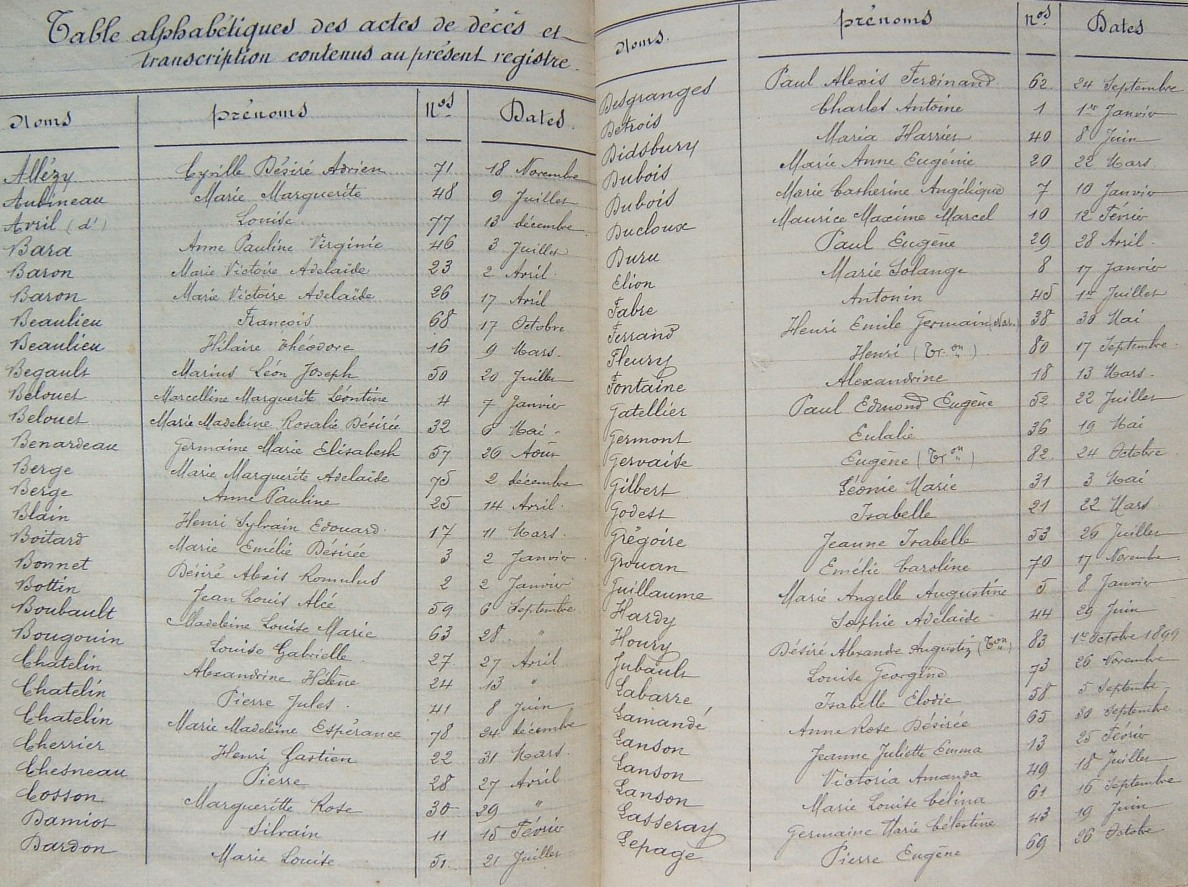 Table alphabétiques des actes de décès et
transcription contenus au présent registre.
Noms prénoms Nos Dates.
Allézy Cyrille Désiré Adrien 71 18 Novembre
Aubineau Marie Marguerite 48 9 Juillet
Avril (d') Louise 77 13 décembre
Bara Anne Pauline Virginie 46 3 Juillet
Baron Marie Victoire Adelaide 23 2 Avril
Baron Marie Victoire Adelaïde 26 17 Avril
Beaulieu François 68 17 Octobre
Beaulieu Hilaire Théodore 16 9 Mars
Begault Marius Léon Joseph 50 20 Juillet
Belouet Marcelline Marguerite Léontine 4 7 Janvier
Belouet Marie Madeleine Rosalie Désirée 32 6 Mai
Benardeau Germaine Marie Elisabeth 57 26 Août
Berge Marie Marguerite Adelaïde 75 2 décembre
Berge Anne Pauline 25 14 Avril
Blain Henri Sylvain Edouard 17 11 Mars
Boitard Marie Emélie Désirée 3 2 Janvier
Bonnet Désiré Alexis Romulus 2 2 Janvier
Bottin Jean Louis Alcé 59 6 Septembre
Boubault Madeleine Louise Marie 63 28 "
Bougouin Louise Gabrielle 27 27 Avril
Chatelin Alexandrine Hélène 24 13 "
Chatelin Pierre Jules 41 8 Juin
Chatelin Marie Madeleine Espérance 78 24 décembre
Cherrier Henri Gastien 22 31 Mars
Chesneau Pierre 28 27 Avril
Cosson Marguerite Rose 30 29 "
Damiot Silvain 11 15 Février
Dardon Marie Louise 51 21 Juillet
Noms. prénoms nos Dates
Desgranges Paul Alexis Ferdinand 62 24 Septembre
Detrois Charles Antoine 1 1er Janvier
Didsbury Maria Harries 40 8 Juin
Dubois Marie Anne Eugénie 20 22 Mars
Dubois Marie Catherine Angélique 7 10 Janvier
Ducloux Maurice Maxime Marcel 10 12 Février
Duru Paul Eugène 29 28 Avril
Elion Marie Solange 8 17 Janvier
Fabre Antonin 45 1er Juillet
Ferrand Henri Emile Germain 38 30 Mai
Fleury Henri (Tr.on) 80 17 Septembre
Fontaine Alexandrine 18 13 Mars
Gatellier Paul Edmond Eugène 52 22 Juillet
Germont Eulalie 36 19 Mai
Gervaise Eugène (Tr.on) 82 24 Octobre
Gilbert Léonie Marie 31 3 Mai
Godest Isabelle 21 22 Mars
Grégoire Jeanne Isabelle 53 26 Juillet
Grouan Emélie Caroline 70 17 Novembre
Guillaume Marie Angelle Augustine 5 8 Janvier
Hardy Sophie Adelaide 44 29 Juin
Houry Désiré Alexandre Augustin (T.on) 83 1er Octobre 1899
Jubault Louise Georgina 73 26 Novembre
Labarre Isabelle Elodie 58 5 Septembre
Lamandé Anne Rose Désirée 65 30 Septembre
Lanson Jeanne Juliette Emma 13 25 Février
Lanson Victoria Amanda 49 18 Juillet
Lanson Marie Louise Célina 61 16 Septembre
Lasseray Germaine Marie Célestine 43 19 Juin
Lepage Pierre Eugène 69 26 Octobre